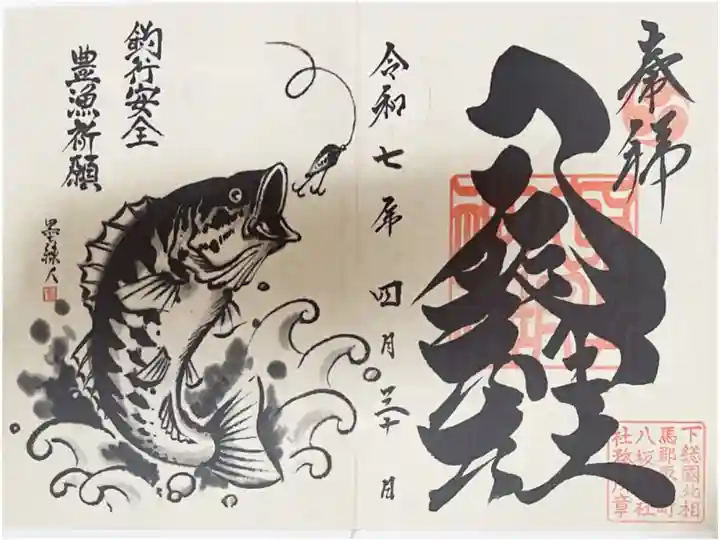 奉拝
八坂神社
令和七年四月三十日
釣行安全
豊漁祈願
下総國北相
馬郡取手町
八坂神社
社務所章